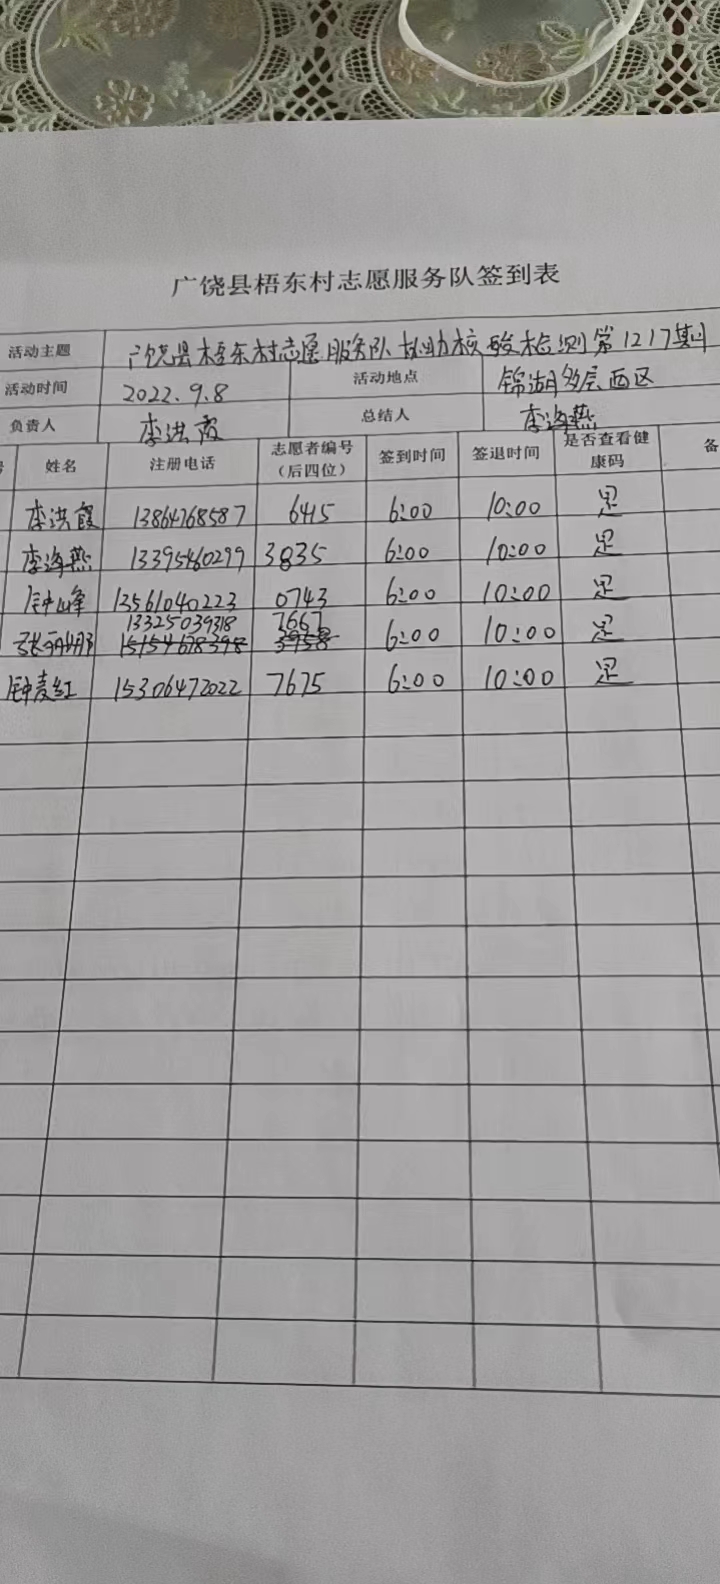 广饶县梧东村志愿服务队签到表
活动主题 广饶县梧东村志愿服务队协助核酸检测第1217期
活动时间 2022.9.8 活动地点 锦湖多层西区
负责人 李洪霞 总结人 李海燕
姓名 注册电话 志愿者编号（后四位） 签到时间 签退时间 是否查看健康码 备
李洪霞 13864768587 6415 6:00 10:00 是
李海燕 13395460299 3835 6:00 10:00 是
13561040223 0743 6:00 10:00 是
13325039318 7667
15154678398 3958 6:00 10:00 是
钟麦红 15306472022 7675 6:00 10:00 是